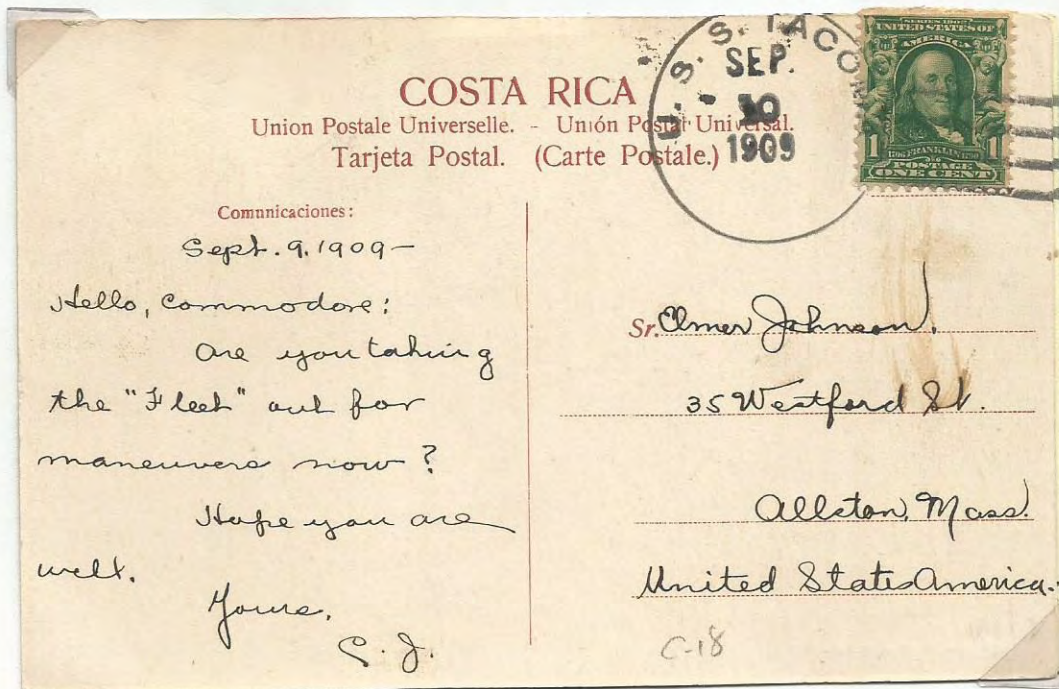 COSTA RICA
Union Postale Universelle. - Unión Postal Universal.
Tarjeta Postal. (Carte Postale.)
U. S. S. TACOMA
SEP.
10
1909
SERIES 1902
UNITED STATES OF
AMERICA
1 FRANKLIN 1
POSTAGE
ONE CENT
Comunicaciones:
Sept. 9. 1909-
Hello, Commodore:
Are you taking
the "Fleet" out for
maneuvers now?
Hope you are
well.
Yours,
C. J.
Sr. Elmer Johnson.
35 Westford St.
Allston, Mass.
United States America.
C-18